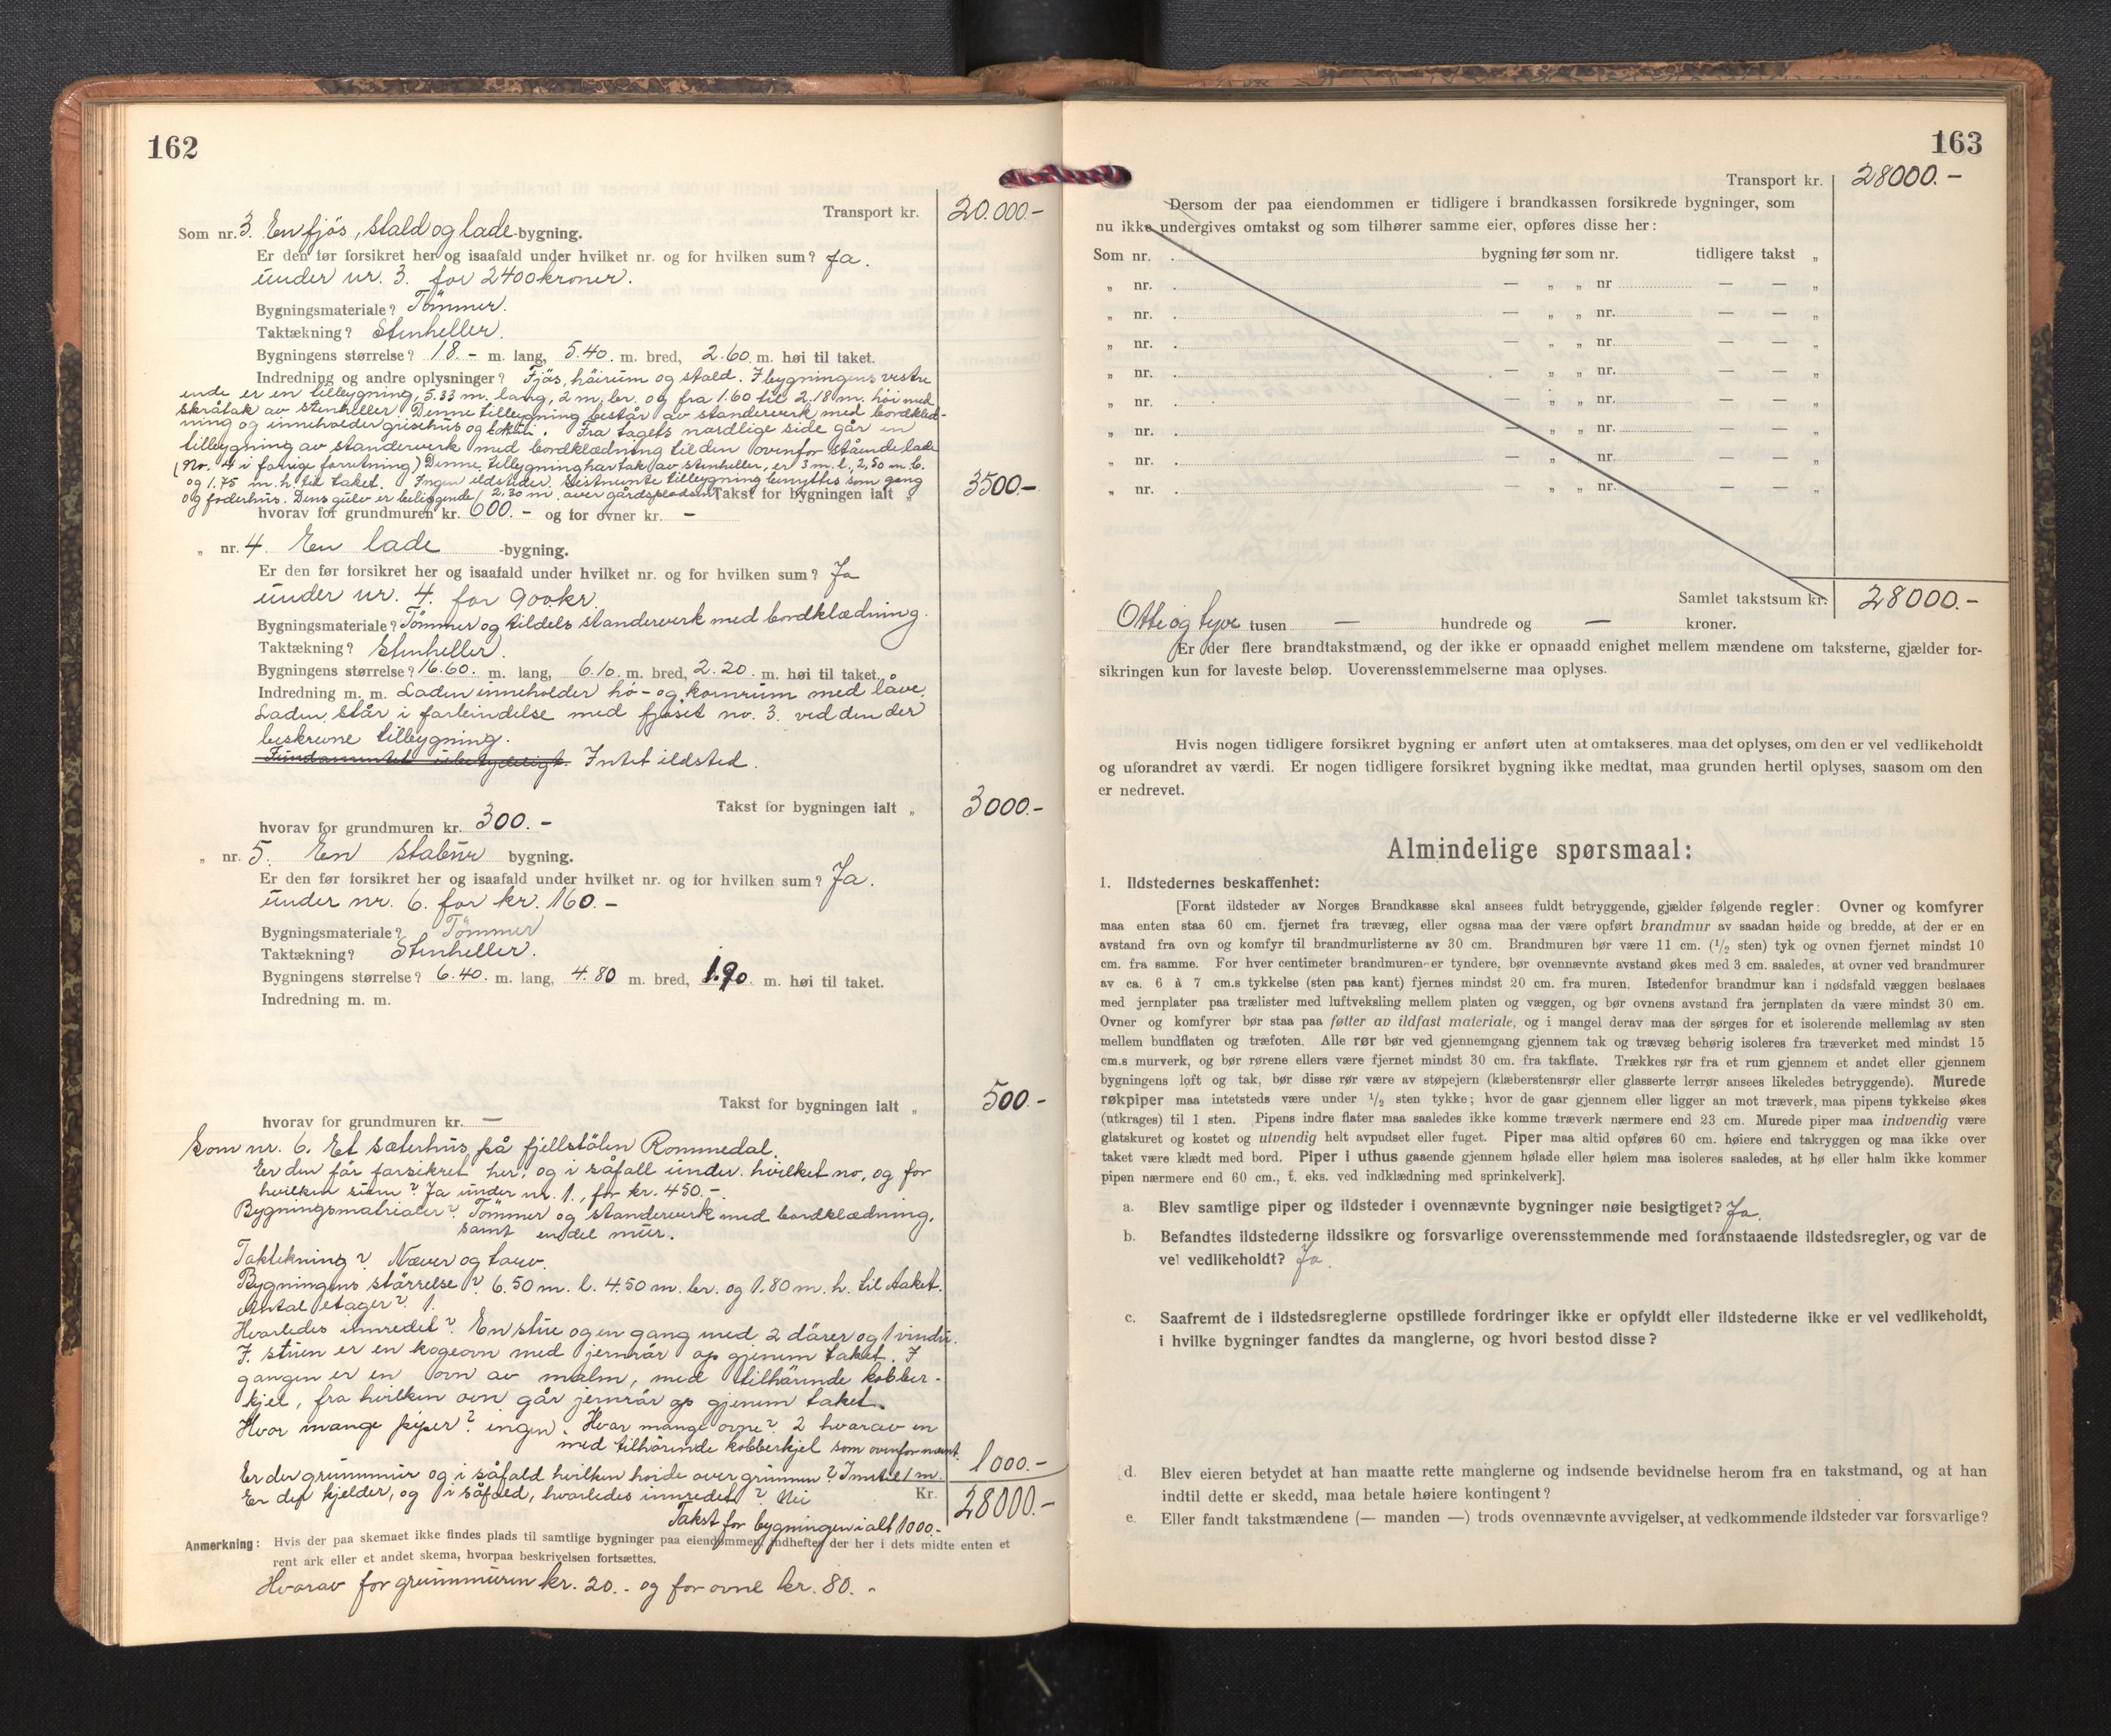 162
Transport kr. 20.000.-
Som nr. 3. En fjös, stald og lade-bygning.
Er den før forsikret her og isaafald under hvilket nr. og for hvilken sum? Ja.
under nr. 3. for 2400 kroner.
Bygningsmateriale? Tömmer.
Taktækning? Stenheller.
Bygningens størrelse? 18.- m. lang, 5.40. m. bred, 2.60. m. høi til taket.
Indredning og andre oplysninger? Fjös, höirum og stald. I bygningens vestre
ende er en tilbygning, 5.33 m. lang, 2 m. br. og fra 1.60 til 2.18 m. høi med
skråtak av stenheller. Denne tilbygning består av standerverk med bordklæd-
ning og inneholder grisehus og. Fra tagets nordlige side går en
tilbygning av standerverk med bordklædning til den ovenfor stående lade
(No. 4 i forrige forretning) Denne tilbygning har tak av stenheller, er 3 m. l., 2,50 m. b.
og 1.75 m. h. til taket. Ingen ildsteder. Sistnevnte tilbygning benyttes som gang
og foderhus. Dens gulv er beliggende 2.30 m. over gårdspladsen. Takst for bygningen ialt „ 3500.-
hvorav for grundmuren kr. 600.- og for ovner kr. -
„ nr. 4. En lade -bygning.
Er den før forsikret her og isaafald under hvilket nr. og for hvilken sum? Ja
under nr. 4. for 900 kr.
Bygningsmateriale? Tömmer og tildels standerverk med bordklædning.
Taktækning? Stenheller.
Bygningens størrelse? 16.60. m. lang, 6.10. m. bred, 2.20. m. høi til taket.
Indredning m. m. Laden inneholder hö- og kornrum med låve.
Laden står i forbindelse med fjöset no. 3. ved den der
beskrevne tilbygning.
Fundamentet ubetydeligt. Intet ildsted.
Takst for bygningen ialt „ 3000.-
hvorav for grundmuren kr. 300.-
„ nr. 5. En stabur bygning.
Er den før forsikret her og isaafald under hvilket nr. og for hvilken sum? Ja.
under nr. 6. for kr. 160.-
Bygningsmateriale? Tömmer
Taktækning? Stenheller.
Bygningens størrelse? 6.40. m. lang, 4.80 m. bred, 1.90. m. høi til taket.
Indredning m. m.
Takst for bygningen ialt „ 500.-
hvorav for grundmuren kr. —
Som nr. 6. Et sæterhus på fjellstölen Rommedal.
Er den för forsikret her, og i såfall under hvilket no, og for
hvilken sum? Ja under nr. 1., for kr. 450.-.
Bygningsmatrialer? Tömmer og standerverk med bordklædning,
samt endel mur.
Taktekning? Næver og torv.
Bygningens störrelse? 6.50 m. l. 4.50 m. br. og 1.80 m. h. til taket.
Antal etager? 1.
Hvorledes innredet? En stue og en gang med 2 dörer og 1 vindu.
I stuen er en kogeovn med jernrör op gjenem taket. I
gangen er en ovn av malm, med tilhörende kobber-
kjel, fra hvilken ovn går jernrör op gjenem taket.
Hvor mange piper? ingen. Hvor mange ovne? 2 hvorav en
med tilhörende kobberkjel som ovenfor nevnt. 1000.-
Er der grunnmur og i såfald hvilken høide over grunnen? Inntil 1 m.
Er der kjelder, og i såfald, hvorledes innredet? Nei Kr. 28000.-
Takst for bygningen ialt 1000.-
Anmerkning: Hvis der paa skemaet ikke findes plads til samtlige bygninger paa eiendommen, indheftes der her i dets midte enten et
rent ark eller et andet skema, hvorpaa beskrivelsen fortsættes.
Hvorav for grunnmuren kr. 20.- og for ovne kr. 80.-
163
Transport kr. 28000.-
Dersom der paa eiendommen er tidligere i brandkassen forsikrede bygninger, som
nu ikke undergives omtakst og som tilhører samme eier, opføres disse her:
Som nr. bygning før som nr. tidligere takst „
„ nr. — „ „ nr — — „
„ nr. — „ „ nr. — — „
„ nr. — „ „ nr. — — „
„ nr. — „ „ nr. — — „
„ nr. — „ „ nr. — — „
„ nr. — „ „ nr. — — „
„ nr. — „ „ nr. — — „
„ nr. — „ „ nr. — — „
Samlet takstsum kr. 28000.-
Otte og tyve tusen — hundrede og — kroner.
Er der flere brandtakstmænd, og der ikke er opnaadd enighet mellem mændene om taksterne, gjælder for-
sikringen kun for laveste beløp. Uoverensstemmelserne maa oplyses.
Hvis nogen tidligere forsikret bygning er anført uten at omtakseres maa det oplyses, om den er vel vedlikeholdt
og uforandret av værdi. Er nogen tidligere forsikret bygning ikke medtat, maa grunden hertil oplyses, saasom om den
er nedrevet.
Almindelige spørsmaal:
1. Ildstedernes beskaffenhet:
[Forat ildsteder av Norges Brandkasse skal ansees fuldt betryggende, gjælder følgende regler: Ovner og komfyrer
maa enten staa 60 cm. fjernet fra trævæg, eller ogsaa maa der være opført brandmur av saadan høide og bredde, at der er en
avstand fra ovn og komfyr til brandmurlisterne av 30 cm. Brandmuren bør være 11 cm. (1/2 sten) tyk og ovnen fjernet mindst 10
cm. fra samme. For hver centimeter brandmuren er tyndere, bør ovennævnte avstand økes med 3 cm. saaledes, at ovner ved brandmurer
av ca. 6 à 7 cm.s tykkelse (sten paa kant) fjernes mindst 20 cm. fra muren. Istedenfor brandmur kan i nødsfald væggen beslaaes
med jernplater paa trælister med luftveksling mellem platen og væggen, og bør ovnens avstand fra jernplaten da være mindst 30 cm.
Ovner og komfyrer bør staa paa føtter av ildfast materiale, og i mangel derav maa der sørges for et isolerende mellemlag av sten
mellem bundflaten og træfoten. Alle rør bør ved gjennemgang gjennem tak og trævæg behørig isoleres fra træverket med mindst 15
cm.s murverk, og bør rørene ellers være fjernet mindst 30 cm. fra takflate. Trækkes rør fra et rum gjennem et andet eller gjennem
bygningens loft og tak, bør disse rør være av støpejern (klæberstensrør eller glasserte lerrør ansees likeledes betryggende). Murede
røkpiper maa intetsteds være under 1/2 sten tykke; hvor de gaar gjennem eller ligger an mot træverk, maa pipens tykkelse økes
(utkrages) til 1 sten. Pipens indre flater maa saaledes ikke komme træverk nærmere end 23 cm. Murede piper maa indvendig være
glatskuret og kostet og utvendig helt avpudset eller fuget. Piper maa altid opføres 60 cm. høiere end takryggen og maa ikke over
taket være klædt med bord. Piper i uthus gaaende gjennem hølade eller hølem maa isoleres saaledes, at hø eller halm ikke kommer
pipen nærmere end 60 cm., t. eks. ved indklædning med sprinkelverk].
a. Blev samtlige piper og ildsteder i ovennævnte bygninger nøie besigtiget? Ja.
b. Befandtes ildstederne ildssikre og forsvarlige overensstemmende med foranstaaende ildstedsregler, og var de
vel vedlikeholdt? Ja.
c. Saafremt de i ildstedsreglerne opstillede fordringer ikke er opfyldt eller ildstederne ikke er vel vedlikeholdt,
i hvilke bygninger fandtes da manglerne, og hvori bestod disse?
d. Blev eieren betydet at han maatte rette manglerne og indsende bevidnelse herom fra en takstmand, og at han
indtil dette er skedd, maa betale høiere kontingent?
e. Eller fandt takstmændene (— manden —) trods ovennævnte avvigelser, at vedkommende ildsteder var forsvarlige?